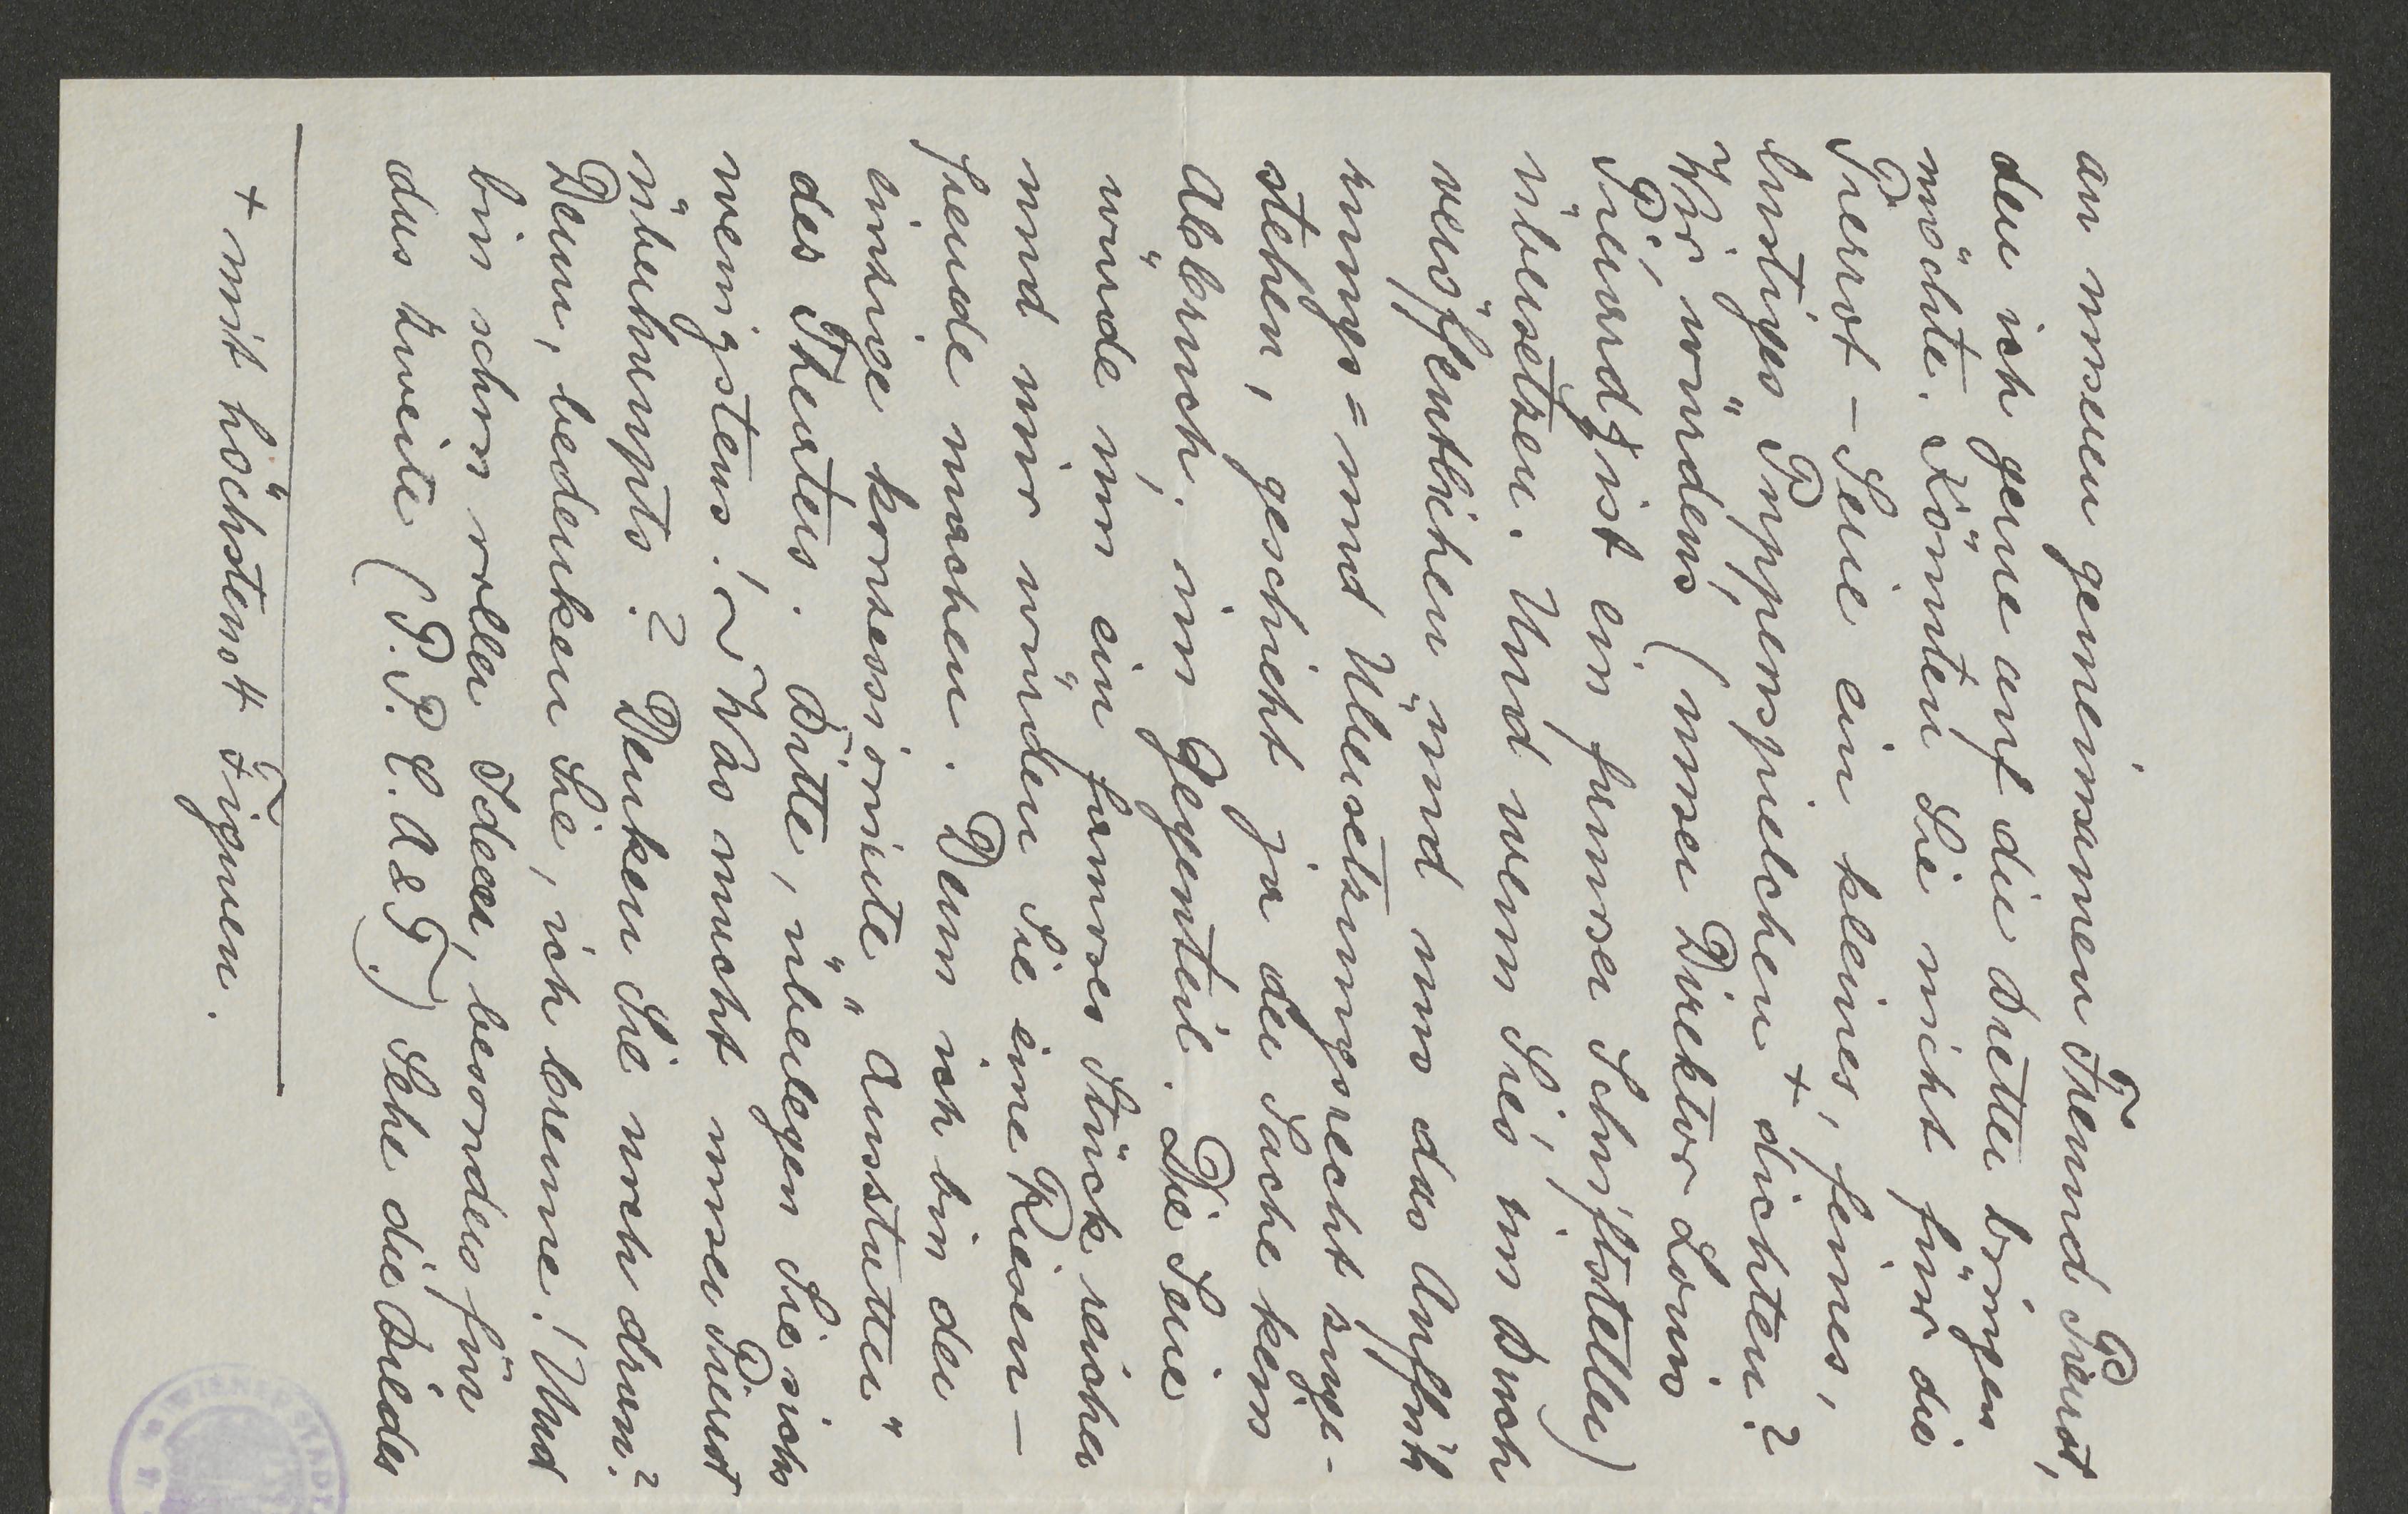 an unseren gemeinsamen Freund Pierrot,
den ich gerne auf die Bretter bringen
möchte. Könnten Sie nicht für die
Pierrot-Serie ein kleines, feines,
lustiges Puppenspielchen + dichten?
Wir würdens (unser Direktor Louis
Pièrard ist ein famoser Schriftsteller)
übersetzen. Und wenn Sie's im Buch
veröffentlichen und uns das Auffüh
rungs= und Übersetzungsrecht zuge-
stehen, geschieht ja der Sache kein
Abbruch, im Gegenteil. Die Serie
würde um ein famoses Stück reicher
und mir würden Sie eine Riesen-
freude machen. Denn ich bin der
einzige konzessionierte "Ausstatter"
des Theaters. Bitte, überlegen Sie sichs
wenigstens! Was macht unser Pierrot
überhaupts? Denken Sie noch dran?
Denn, bedenken Sie, ich brenne! Und
bin schon voller Ideen, besonders für
das zweite (P. P. C. A & F.) Sehe die Bilder
+ mit höchstens 4 Figuren.
WIENER STADT